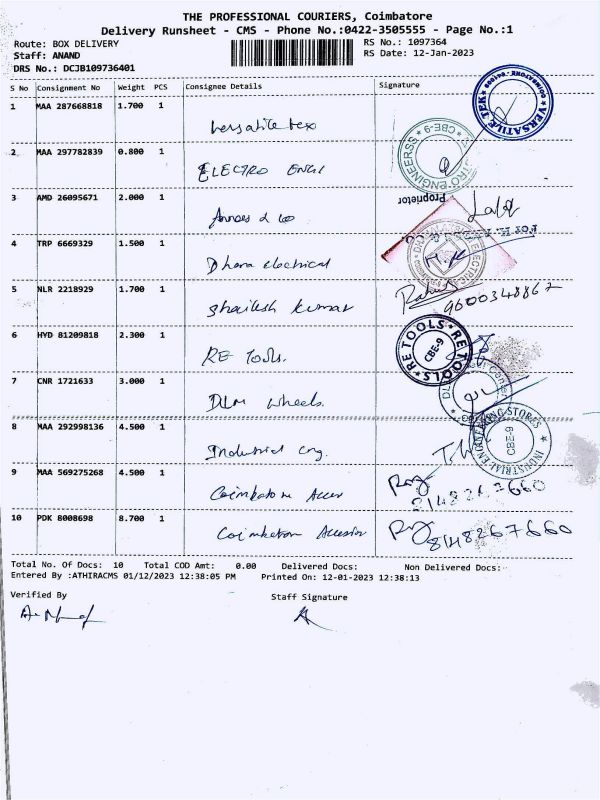 THE PROFESSIONAL COURIERS, Coimbatore
Delivery Runsheet - CMS - Phone No.:0422-3505555 - Page No.:1
Route: BOX DELIVERY RS No.: 1097364
Staff: ANAND RS Date: 12-Jan-2023
DRS No.: DCJB109736401
S No Consignment No Weight PCS Consignee Details Signature
1 MAA 287668818 1.700 1 Versatile tex
VERSATILE TEK
2 MAA 297782839 0.800 1 ELECTRO ENGI
CBE-9
3 AMD 26095671 2.000 1
Proprietor
4 TRP 6669329 1.500 1 Dhana electrical
5 NLR 2218929 1.700 1 Shailesh kumar
Rahul 9600348867
6 HYD 81209818 2.300 1 RE Tools.
RE TOOLS RE TOOLS CBE-9
7 CNR 1721633 3.000 1 DLM wheels.
8 MAA 292998136 4.500 1 Industrial eng.
INDUSTRIAL ENGINEERING STORES CBE-9
9 MAA 569275268 4.500 1 Coimbatore Acces
10 PDK 8008698 8.700 1 Coimbatore Accessor
8148267660
Total No. Of Docs: 10 Total COD Amt: 0.00 Delivered Docs: Non Delivered Docs:
Entered By :ATHIRACMS 01/12/2023 12:38:05 PM Printed On: 12-01-2023 12:38:13
Verified By Staff Signature